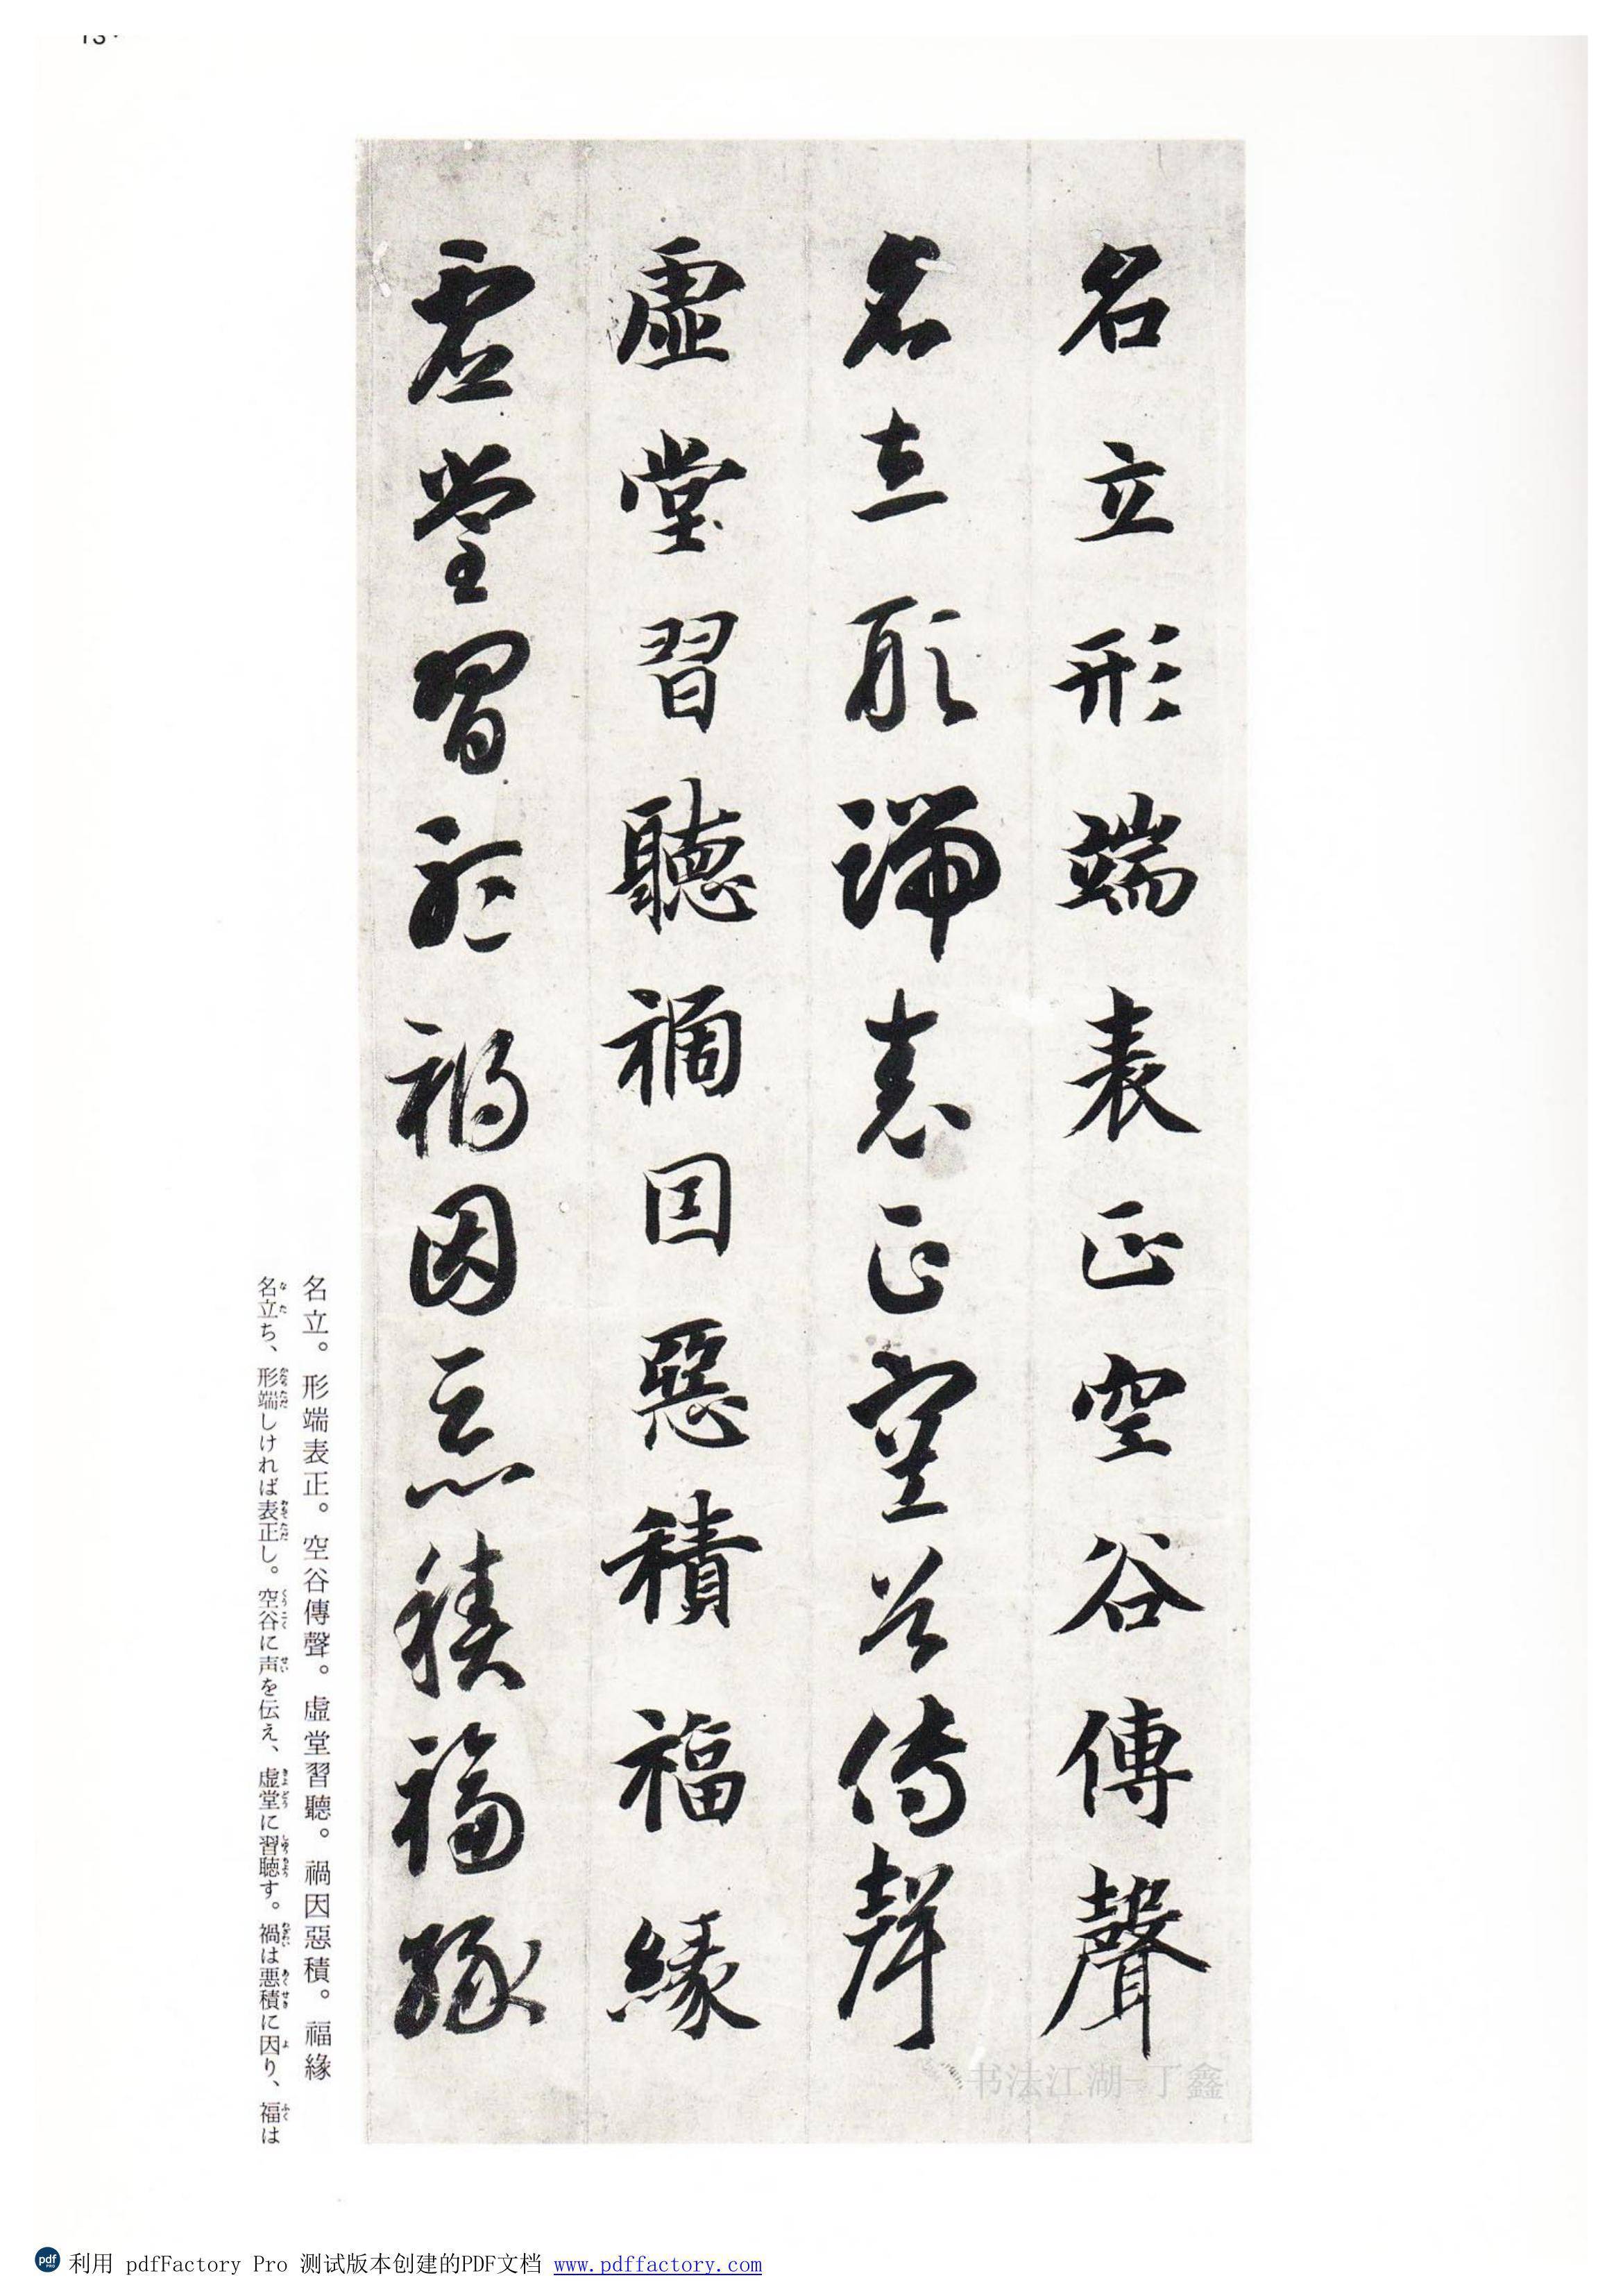 名立形端表正空谷傳聲
名立形端表正空谷傳聲
虛堂習聽禍因惡積福緣
虛堂習聽禍因惡積福緣
名立。形端表正。空谷傳聲。虛堂習聽。禍因惡積。福緣
名立ち、形端しければ表正し。空谷に声を伝え、虚堂に習聴す。禍は悪積に因り、福は
书法江湖-丁鑫
利用 pdfFactory Pro 测试版本创建的PDF文档 www.pdffactory.com